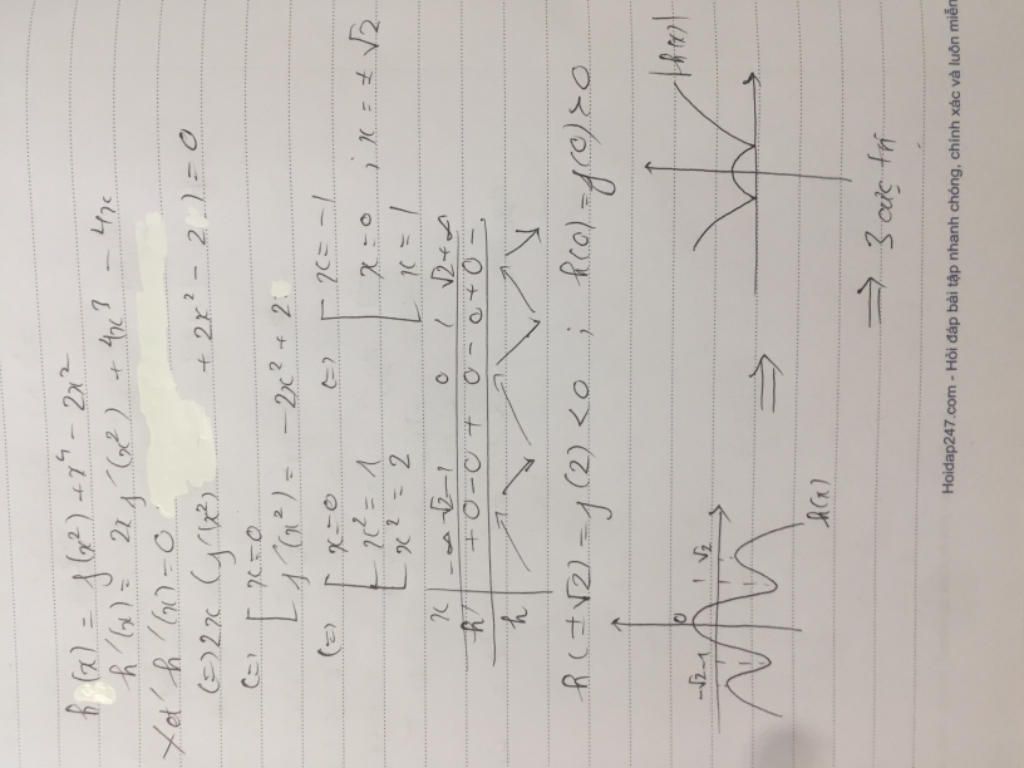 h(x) = f(x²) + x⁴ - 2x²
h'(x) = 2x f'(x²) + 4x³ - 4x
Xét h'(x) = 0
(=) 2x (f'(x²) + 2x² - 2) = 0
(=) [ x = 0
f'(x²) = -2x² + 2
(=) [ x = 0 (=) [ x = -1
[ x² = 1 x = 0 ; x = ± √2
x² = 2 x = 1
x -∞ -√2 -1 0 1 √2 +∞
h' + 0 - 0 + 0 - 0 + 0 -
h
h(±√2) = f(2) < 0 ; h(0) = f(0) > 0
0 |h(x)|
-√2 -1 1 √2 =>
h(x)
=> 3 cực trị
Hoidap247.com - Hỏi đáp bài tập nhanh chóng, chính xác và luôn miễn